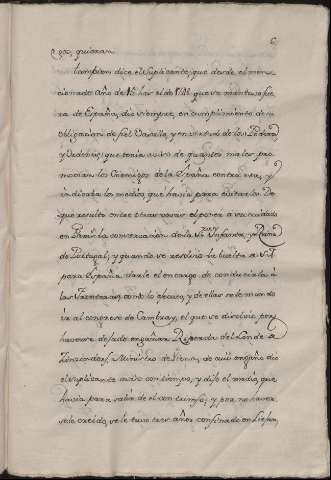 6
que, quieran.
Tambien dice el Suplicante, que desde el men-
cionado Año de 15 hasta el de 1748 que se mantuvo fue-
ra de España, dio siempre, en cumplimiento de su
obligacion de fiel Vasallo, y en virtud de los
y Ordenes, que tenia aviso de quantos males pro-
movian los Enemigos de la España contra ella, y
indicaba los medios, que havia para evitarlos. De
que resulto entre otras cosas el poner a su cuidado
en la conservacion de la Sra. Infanta, Reina
de Portugal; y quando se resolvio la buelta a
para España, darle el encargo de conducirla à
las Fronteras, como lo efectuo, y de ellas se le mando
ir al congreso de Cambray, el que se disolvio por
haverse dejado engañar Riperda del Conde de
Zinzendorf, Ministro de Viena, de cuio engaño dio
el Suplicante aviso con tiempo, y dijo el medio, que
havia para salir de el con triunfo; y por no haver-
sele creido, se le tuvo tres años confinado en